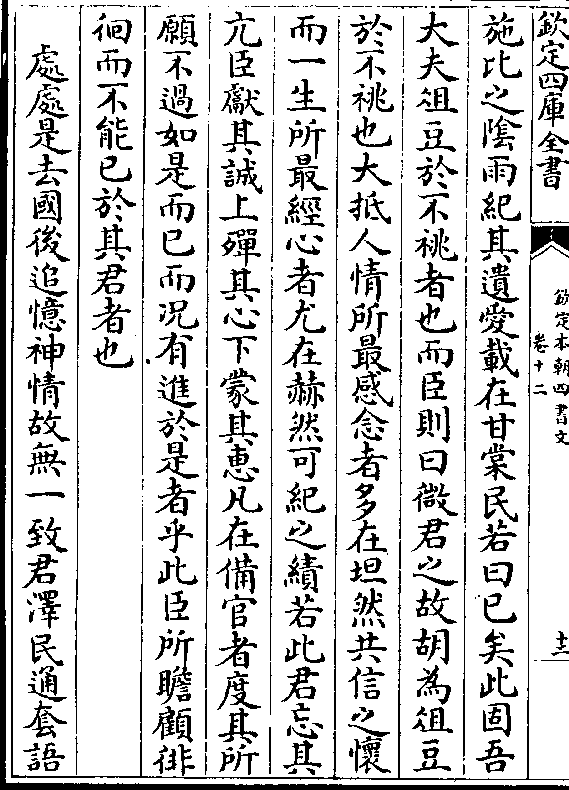 欽定四庫全書
欽定本朝四書文
卷十二
十三
施比之陰雨紀其遺愛載在甘棠民若曰已矣此固吾
大夫俎豆於不祧者也而臣則曰微君之故胡為俎豆
於不祧也大抵人情所最感念者多在坦然共信之懷
而一生所最經心者尤在赫然可紀之績若此君忘其
亢臣獻其誠上殫其心下蒙其恵凡在備官者度其所
願不過如是而已而況有進於是者乎此臣所瞻顧徘
徊而不能已於其君者也
處處是去國後追憶神情故無一致君澤民通套語